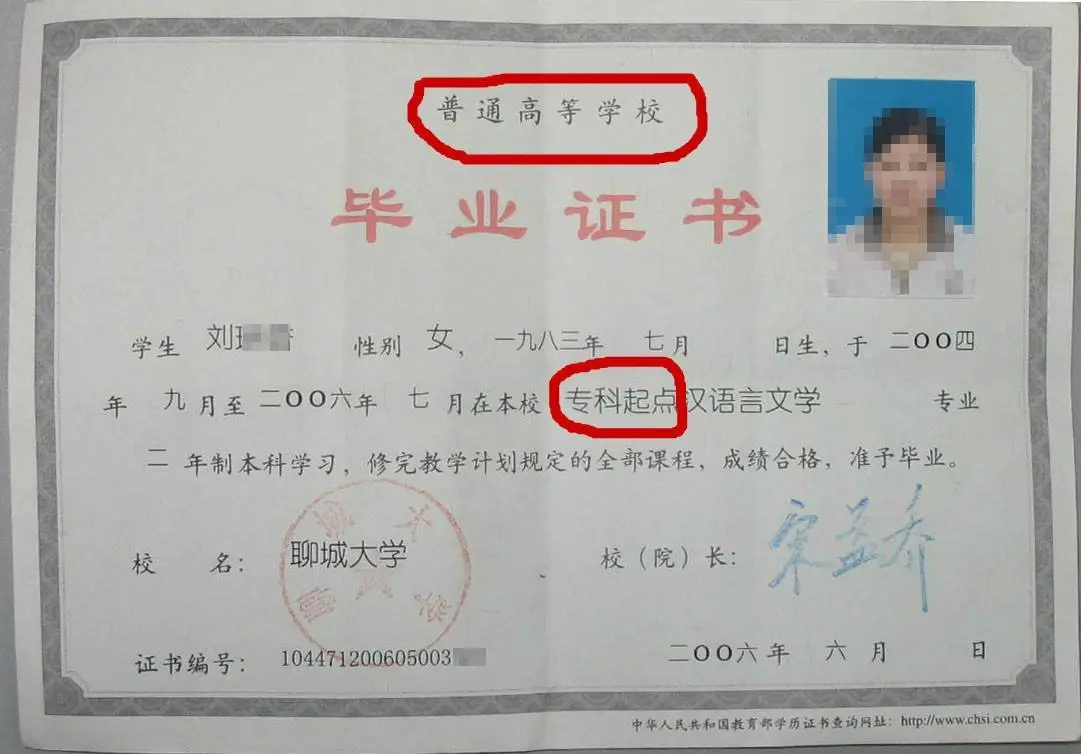 普通高等学校
毕业证书
学生 刘 性别 女，一九八三年 七月 日生，于 二〇〇四
年 九月至 二〇〇六年 七 月在本校 专科起点汉语言文学 专业
二 年制本科学习，修完教学计划规定的全部课程，成绩合格，准予毕业。
校 名：聊城大学 校（院）长：宋益乔
证书编号：104471200605003 二〇〇六年 六月 日
中华人民共和国教育部学历证书查询网址：http://www.chsi.com.cn